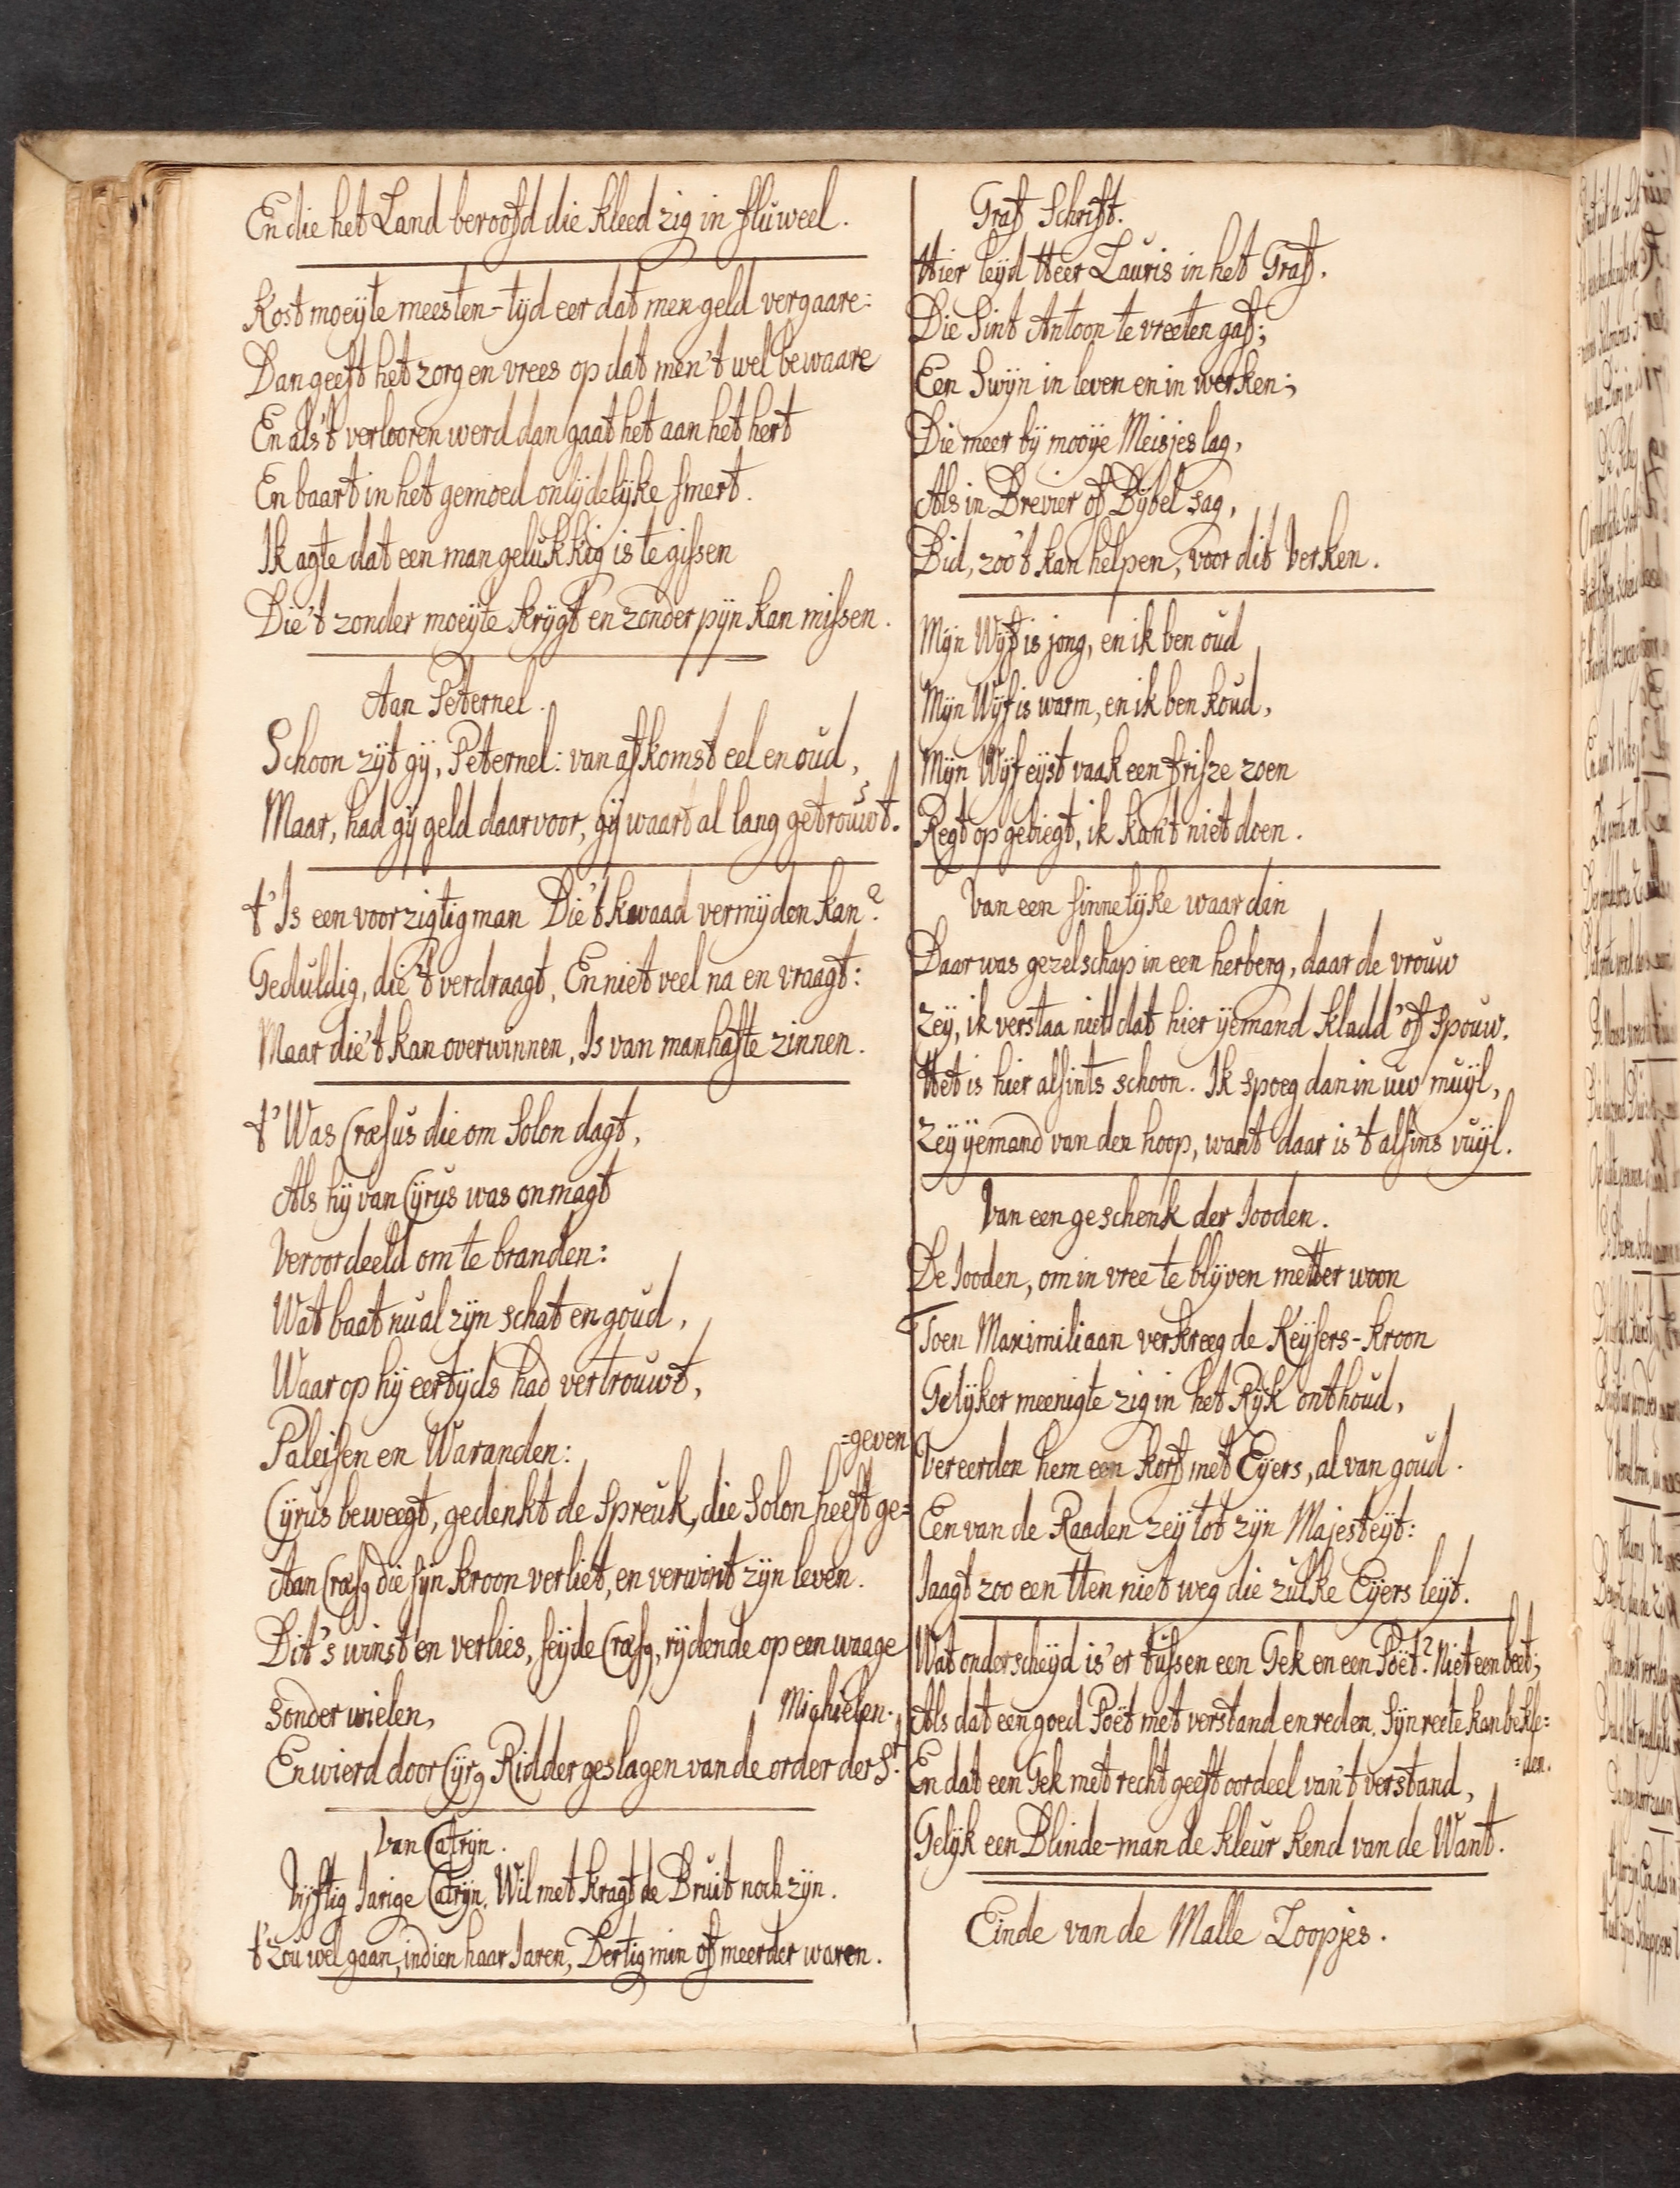 En die het Land beroofd die kleed zig in fluweel.
Kost moeyte meesten-tyd eer dat men geld vergaare:
Dan geeft het zorg en vrees op dat men't wel bewaare
En als't verlooren werd dan gaat het aan het hert
En baart in het gemoed onlydelyke smert.
Ik agte dat een man gelukkig is te gissen
Die't zonder moeyte krygt en zonder pyn kan missen.
Aan Peternel.
Schoon zyt gy, Peternel: van afkomst eel en oud,
Maar, had gy geld daar voor, gy waart al lang getrouwt.
t'Is een voorzigtig man Die't kwaad vermyden kan?
Geduldig, die't verdraagt, En niet veel na en vraagt:
Maar die't kan overwinnen, Is van manhafte zinnen.
t'Was Cræsus die om Solon dagt,
Als hy van Cyrus was onmagt
Veroordeeld om te branden:
Wat baat nu al zyn schat en goud,
Waar op hy eertyds had vertrouwt,
Paleisen en Waranden:
Cyrus beweegt, gedenkt de Spreuk, die Solon heeft ge=
=geven
Aan Cræsꝯ die syn kroon verliet, en verwint zyn leven.
Dit's winst en verlies, seyde Cræsꝯ, rydende op een waage
sonder wielen,
En wierd door Cyrꝯ Ridder geslagen van de order der St.
Michielen.
Van Catryn.
Vyftig Jarige Catryn, Wil met kragt de Bruit noch zyn.
t'zou wel gaan, indien haar Jaren, Dertig min of meerder waren.
Graf Schrift.
Hier leyd Heer Lauris in het Graf,
Die Sint Antoon te vreeten gaf;
Een Swyn in leven en in werken;
Die meer by mooye Meisjes lag,
Als in Brevier of Bybel sag,
Bid, zoo't kan helpen, voor dit Verken.
Myn Wyf is jong, en ik ben oud
Myn Wyf is warm, en ik ben koud,
Myn Wyf eyst vaak een frisze zoen
Regt op gebiegt, ik kan't niet doen.
Van een sinnelyke waardin
Daar was gezelschap in een herberg, daar de vrouw
Zey, ik verstaa niet dat hier yemand kladd' of spouw.
Het is hier alsints schoon. Ik spoeg dan in uw muyl,
Zey yemand van den hoop, want daar is't alsins vuyl.
Van een geschenk der Jooden.
De Jooden, om in vree te blyven metter woon
Toen Maximiliaan verkreeg de Keysers-kroon
Gelyker meenigte zig in het Ryk onthoud,
Vereerden hem een korf met Eyers, al van goud.
Een van de Raaden zey tot zyn Majesteyt:
Jaagt zoo een Hen niet weg die zulke Eyers leyt.
Wat onderscheyd is'er tussen een Gek en een Poët? Niet een beet;
Als dat een goed Poët met verstand en reden, Syn reete kan bekle=
=den.
En dat een Gek met recht geeft oordeel van't verstand,
Gelyk een Blinde-man de kleur kend van de Want.
Einde van de Malle Loopjes.